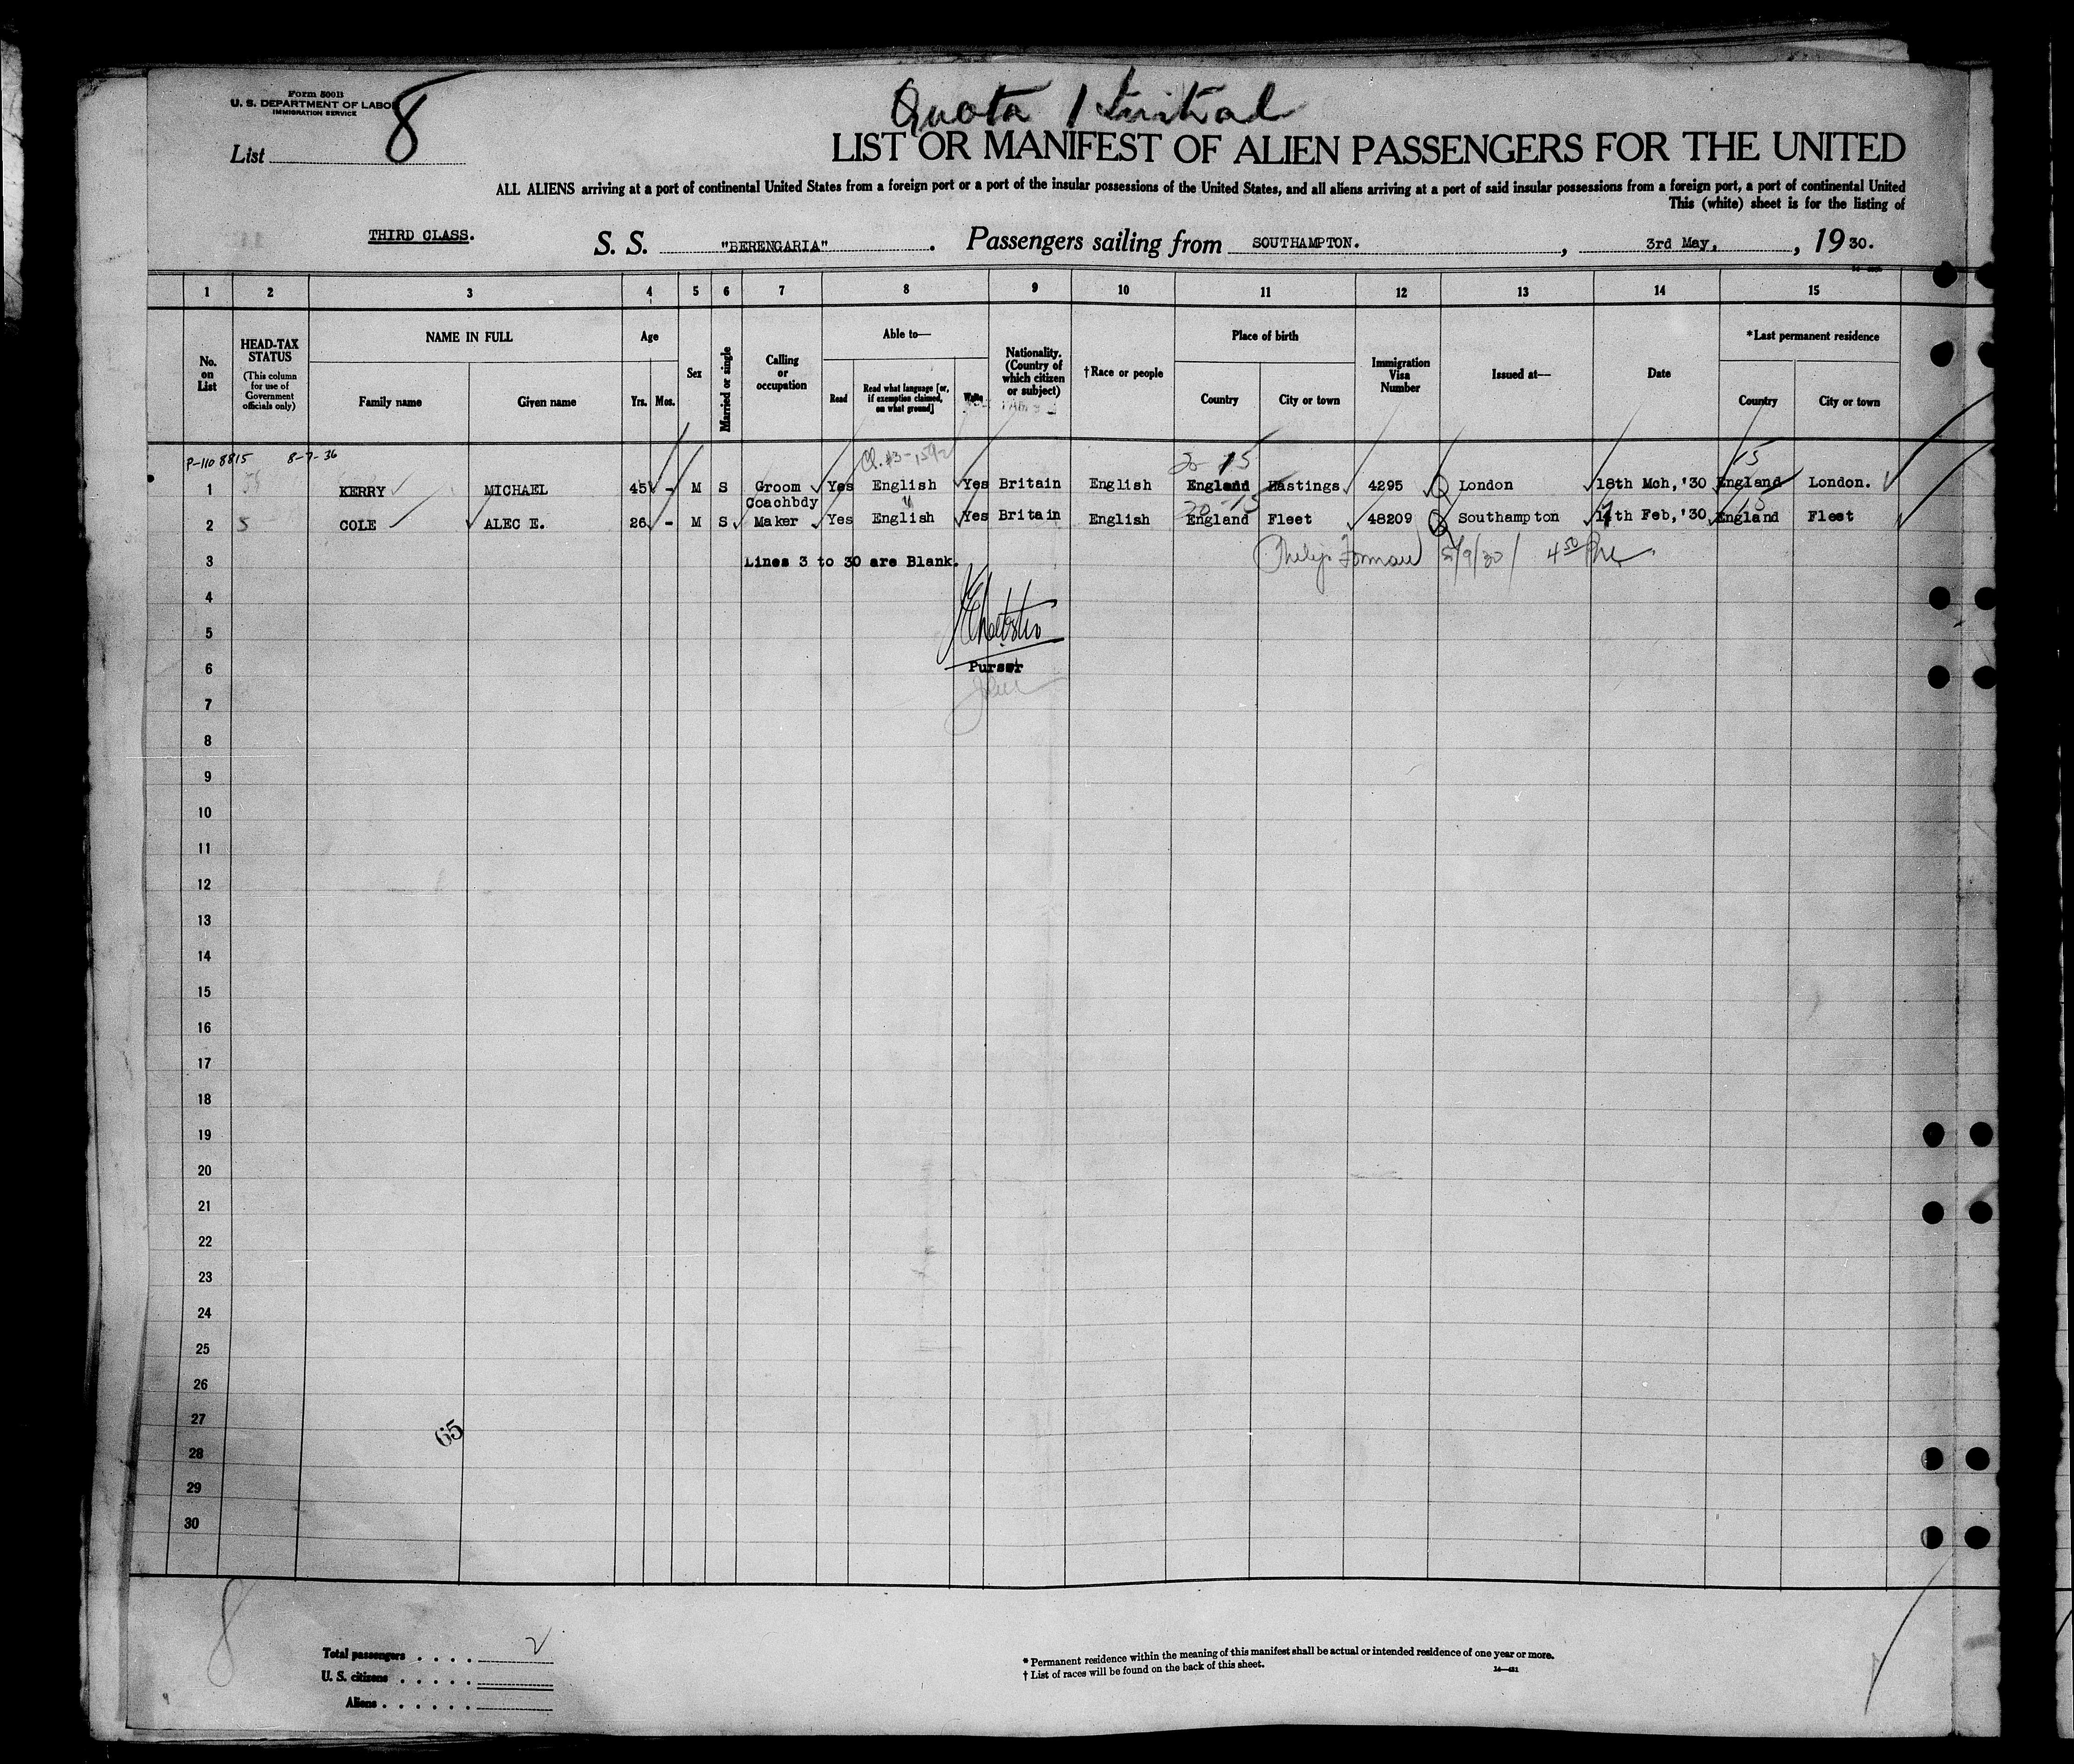 Form 500B
U. S. DEPARTMENT OF LABOR
IMMIGRATION SERVICE
Quota
List 8
LIST OR MANIFEST OF ALIEN PASSENGERS FOR THE UNITED
ALL ALIENS arriving at a port of continental United States from a foreign port or a port of the insular possessions of the United States, and all aliens arriving at a port of said insular possessions from a foreign port, a port of continental United
This (white) sheet is for the listing of
THIRD CLASS. S. S. "BERENGARIA". Passengers sailing from SOUTHAMPTON., 3rd May, , 19 30.
1 2 3 4 5 6 7 8 9 10 11 12 13 14 15
No. on List HEAD-TAX STATUS (This column for use of Government officials only) NAME IN FULL Family name Given name Age Yrs. Mos. Sex Married or single Calling or occupation Able to— Read Read what language [or, if exemption claimed, on what ground] Write Nationality. (Country of which citizen or subject) †Race or people Place of birth Country City or town Immigration Visa Number Issued at— Date *Last permanent residence Country City or town
P-110 8815 8-7-36
15 15
1 KERRY MICHAEL 45 - M S Groom Yes English Yes Britain English England Hastings 4295 Q London 18th Mch,'30 England London.
2 5 COLE ALEC E. 26 - M S Coachbdy Maker Yes English Yes Britain English England Fleet 48209 Q Southampton 14th Feb,'30 England Fleet
3 Lines 3 to 30 are Blank. 5/9/30
4
5
6 Purser
7
8
9
10
11
12
13
14
15
16
17
18
19
20
21
22
23
24
25
26
27
65
28
29
30
8
Total passengers . . . . 2
U. S. citizens . . . . .
Aliens . . . . . .
* Permanent residence within the meaning of this manifest shall be actual or intended residence of one year or more.
† List of races will be found on the back of this sheet.